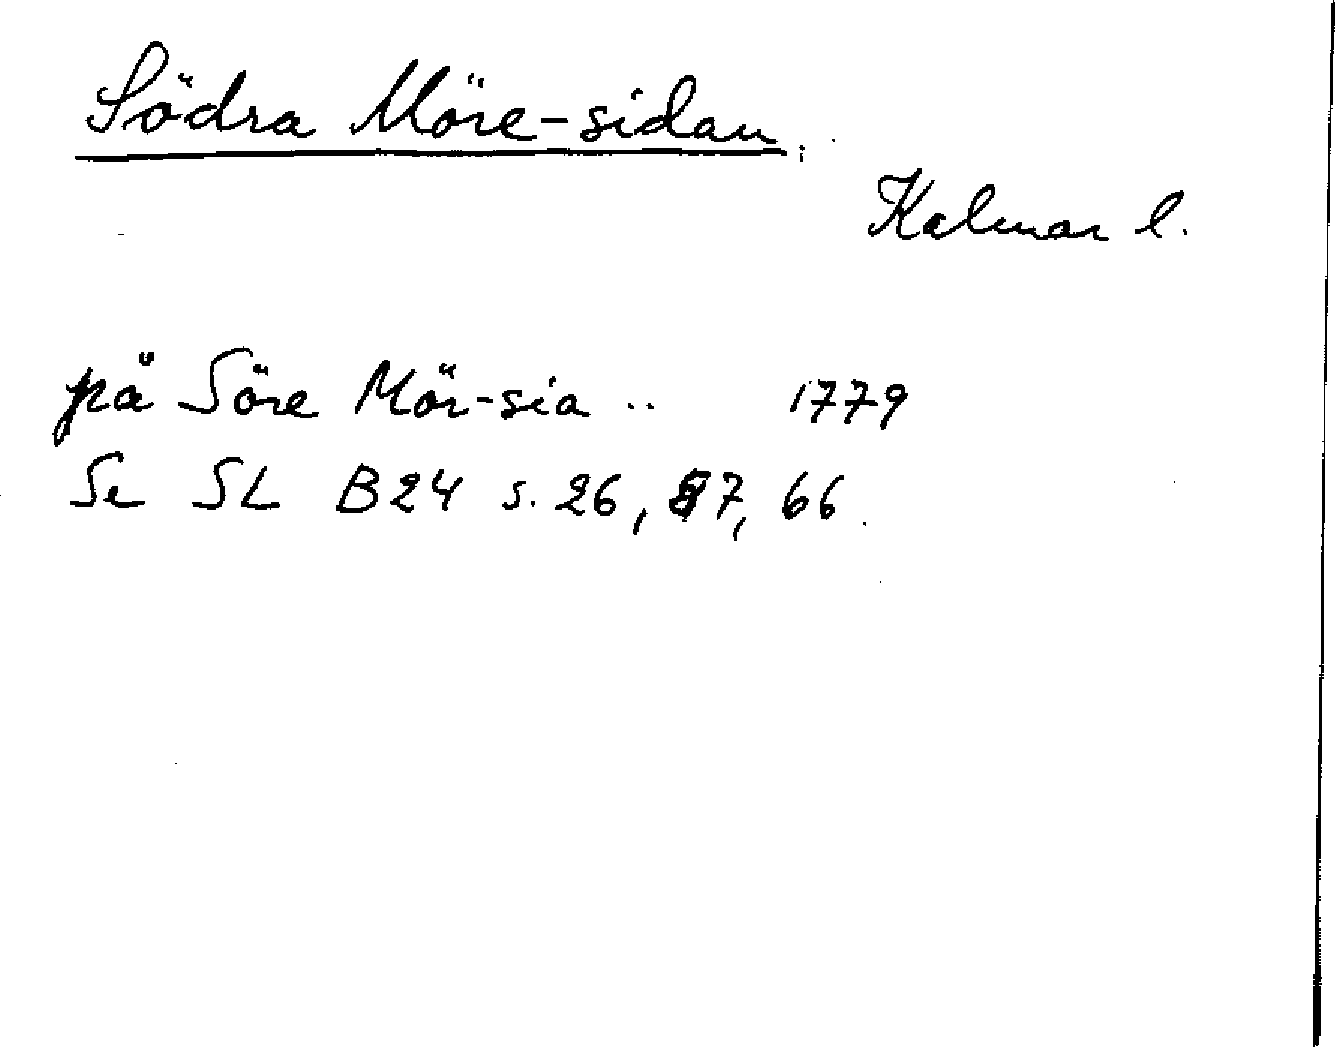 Södra Möre-sidan
Kalmar l.
på Söre Mör-sia .. 1779
Se SL B24 s. 26, 57, 66.